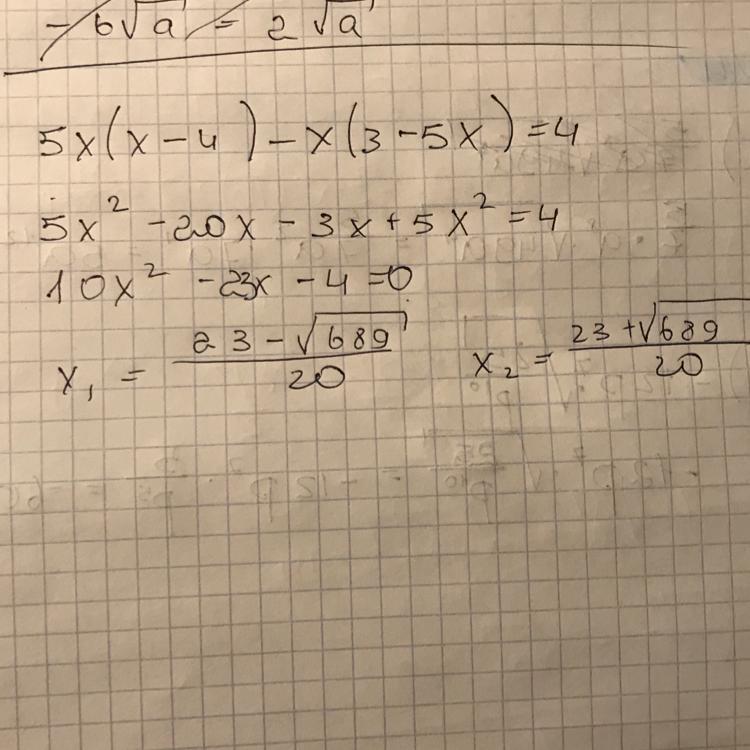 - 6√a = 2√a
5x(x-4)-x(3-5x)=4
5x² -20x - 3x + 5x² = 4
10x² -23x -4=0
x₁ = (23-√689)/20 x₂ = (23+√689)/20